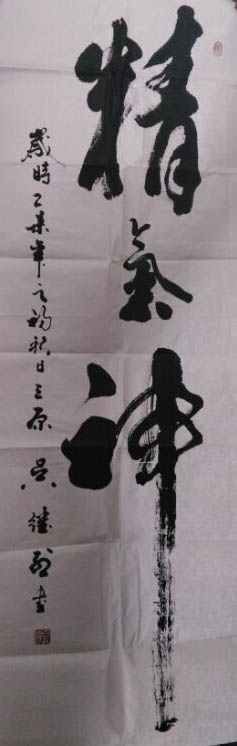 精氣神
歲時乙未年之初秋日三原吳　書